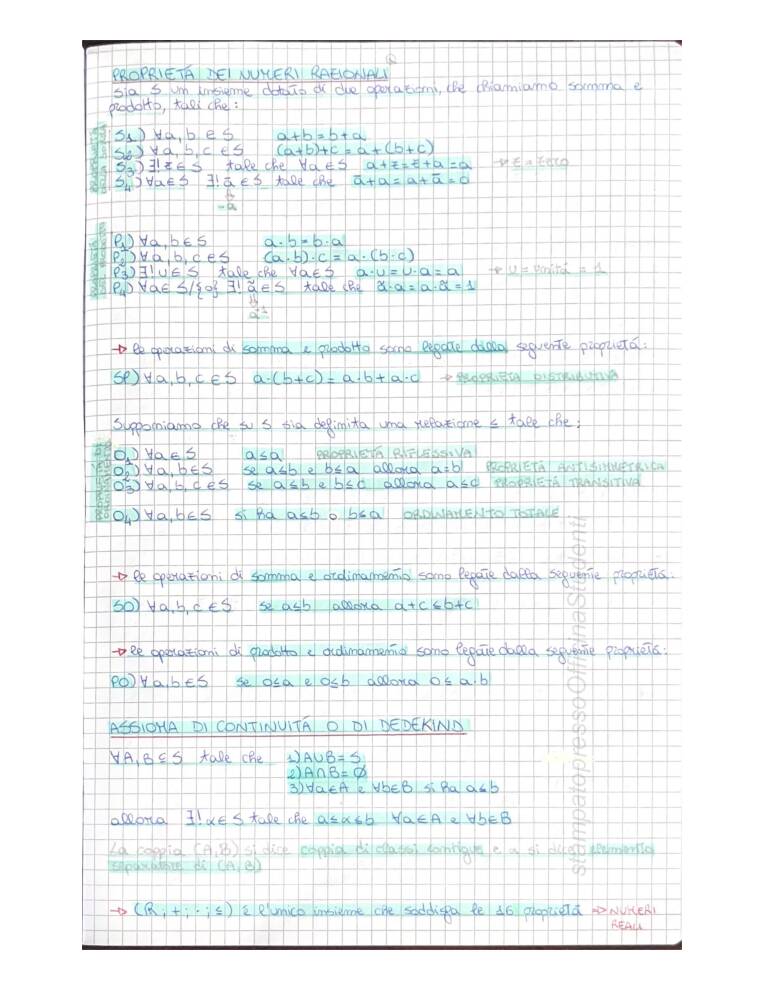 PROPRIETÁ DEI NUMERI RAZIONALI
Sia S un insieme dotato di due operazioni, che chiamiamo somma e
prodotto, tali che:
S1) ∀a, b ∈ S a+b=b+a
S2) ∀a, b, c ∈ S (a+b)+c = a+(b+c)
S3) ∃! z ∈ S tale che ∀a∈S a+z=z+a=a → z = zero
S4) ∀a∈S ∃! ā ∈ S tale che ā+a=a+ā=0
-a
P1) ∀a, b∈S a·b=b·a
P2) ∀a, b, c ∈S (a·b)·c = a·(b·c)
P3) ∃! u∈S tale che ∀a∈S a·u=u·a=a → u = unitá = 1
P4) ∀a∈ S/{0} ∃! ã∈S tale che ã·a=a·ã=1
a⁻¹
→ le operazioni di somma e prodotto sono legate dalla seguente proprietá:
SP) ∀a, b, c ∈S a·(b+c)=a·b+a·c → PROPRIETÁ DISTRIBUTIVA
Supponiamo che su S sia definita una relazione ≤ tale che:
O1) ∀a∈S a≤a PROPRIETÁ RIFLESSIVA
O2) ∀a, b∈S se a≤b e b≤a allora a=b PROPRIETÁ ANTISIMMETRICA
O3) ∀a, b, c∈S se a≤b e b≤c allora a≤c PROPRIETÁ TRANSITIVA
O4) ∀a, b∈S si ha a≤b o b≤a ORDINAMENTO TOTALE
→ le operazioni di somma e ordinamento sono legate dalla seguente proprietá:
SO) ∀a, b, c ∈S se a≤b allora a+c≤b+c
→ le operazioni di prodotto e ordinamento sono legate dalla seguente proprietá:
PO) ∀a, b∈S se 0≤a e 0≤b allora 0≤a·b
ASSIOMA DI CONTINUITÁ O DI DEDEKIND
∀A, B ⊆ S tale che 1) A∪B=S
2) A∩B=Ø
3) ∀a∈A e ∀b∈B si ha a≤b
allora ∃! α∈S tale che a≤α≤b ∀a∈A e ∀b∈B
La coppia (A,B) si dice coppia di classi contigue e α si dice elemento
separatore di (A,B)
→ (R; +; ·; ≤) é l'unico insieme che soddisfa le 16 proprietá → NUMERI
REALI
stampatopressoOfficinaStudenti